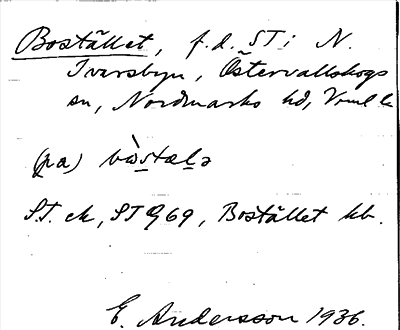 Bostället, f.d. ST i N.
Ivarsbyn, Östervallskogs
sn, Nordmarks hd, Vrml l.
(pa) bòstælə
S.T. ek, ST 969, Bostället kb.
E. Andersson 1936.